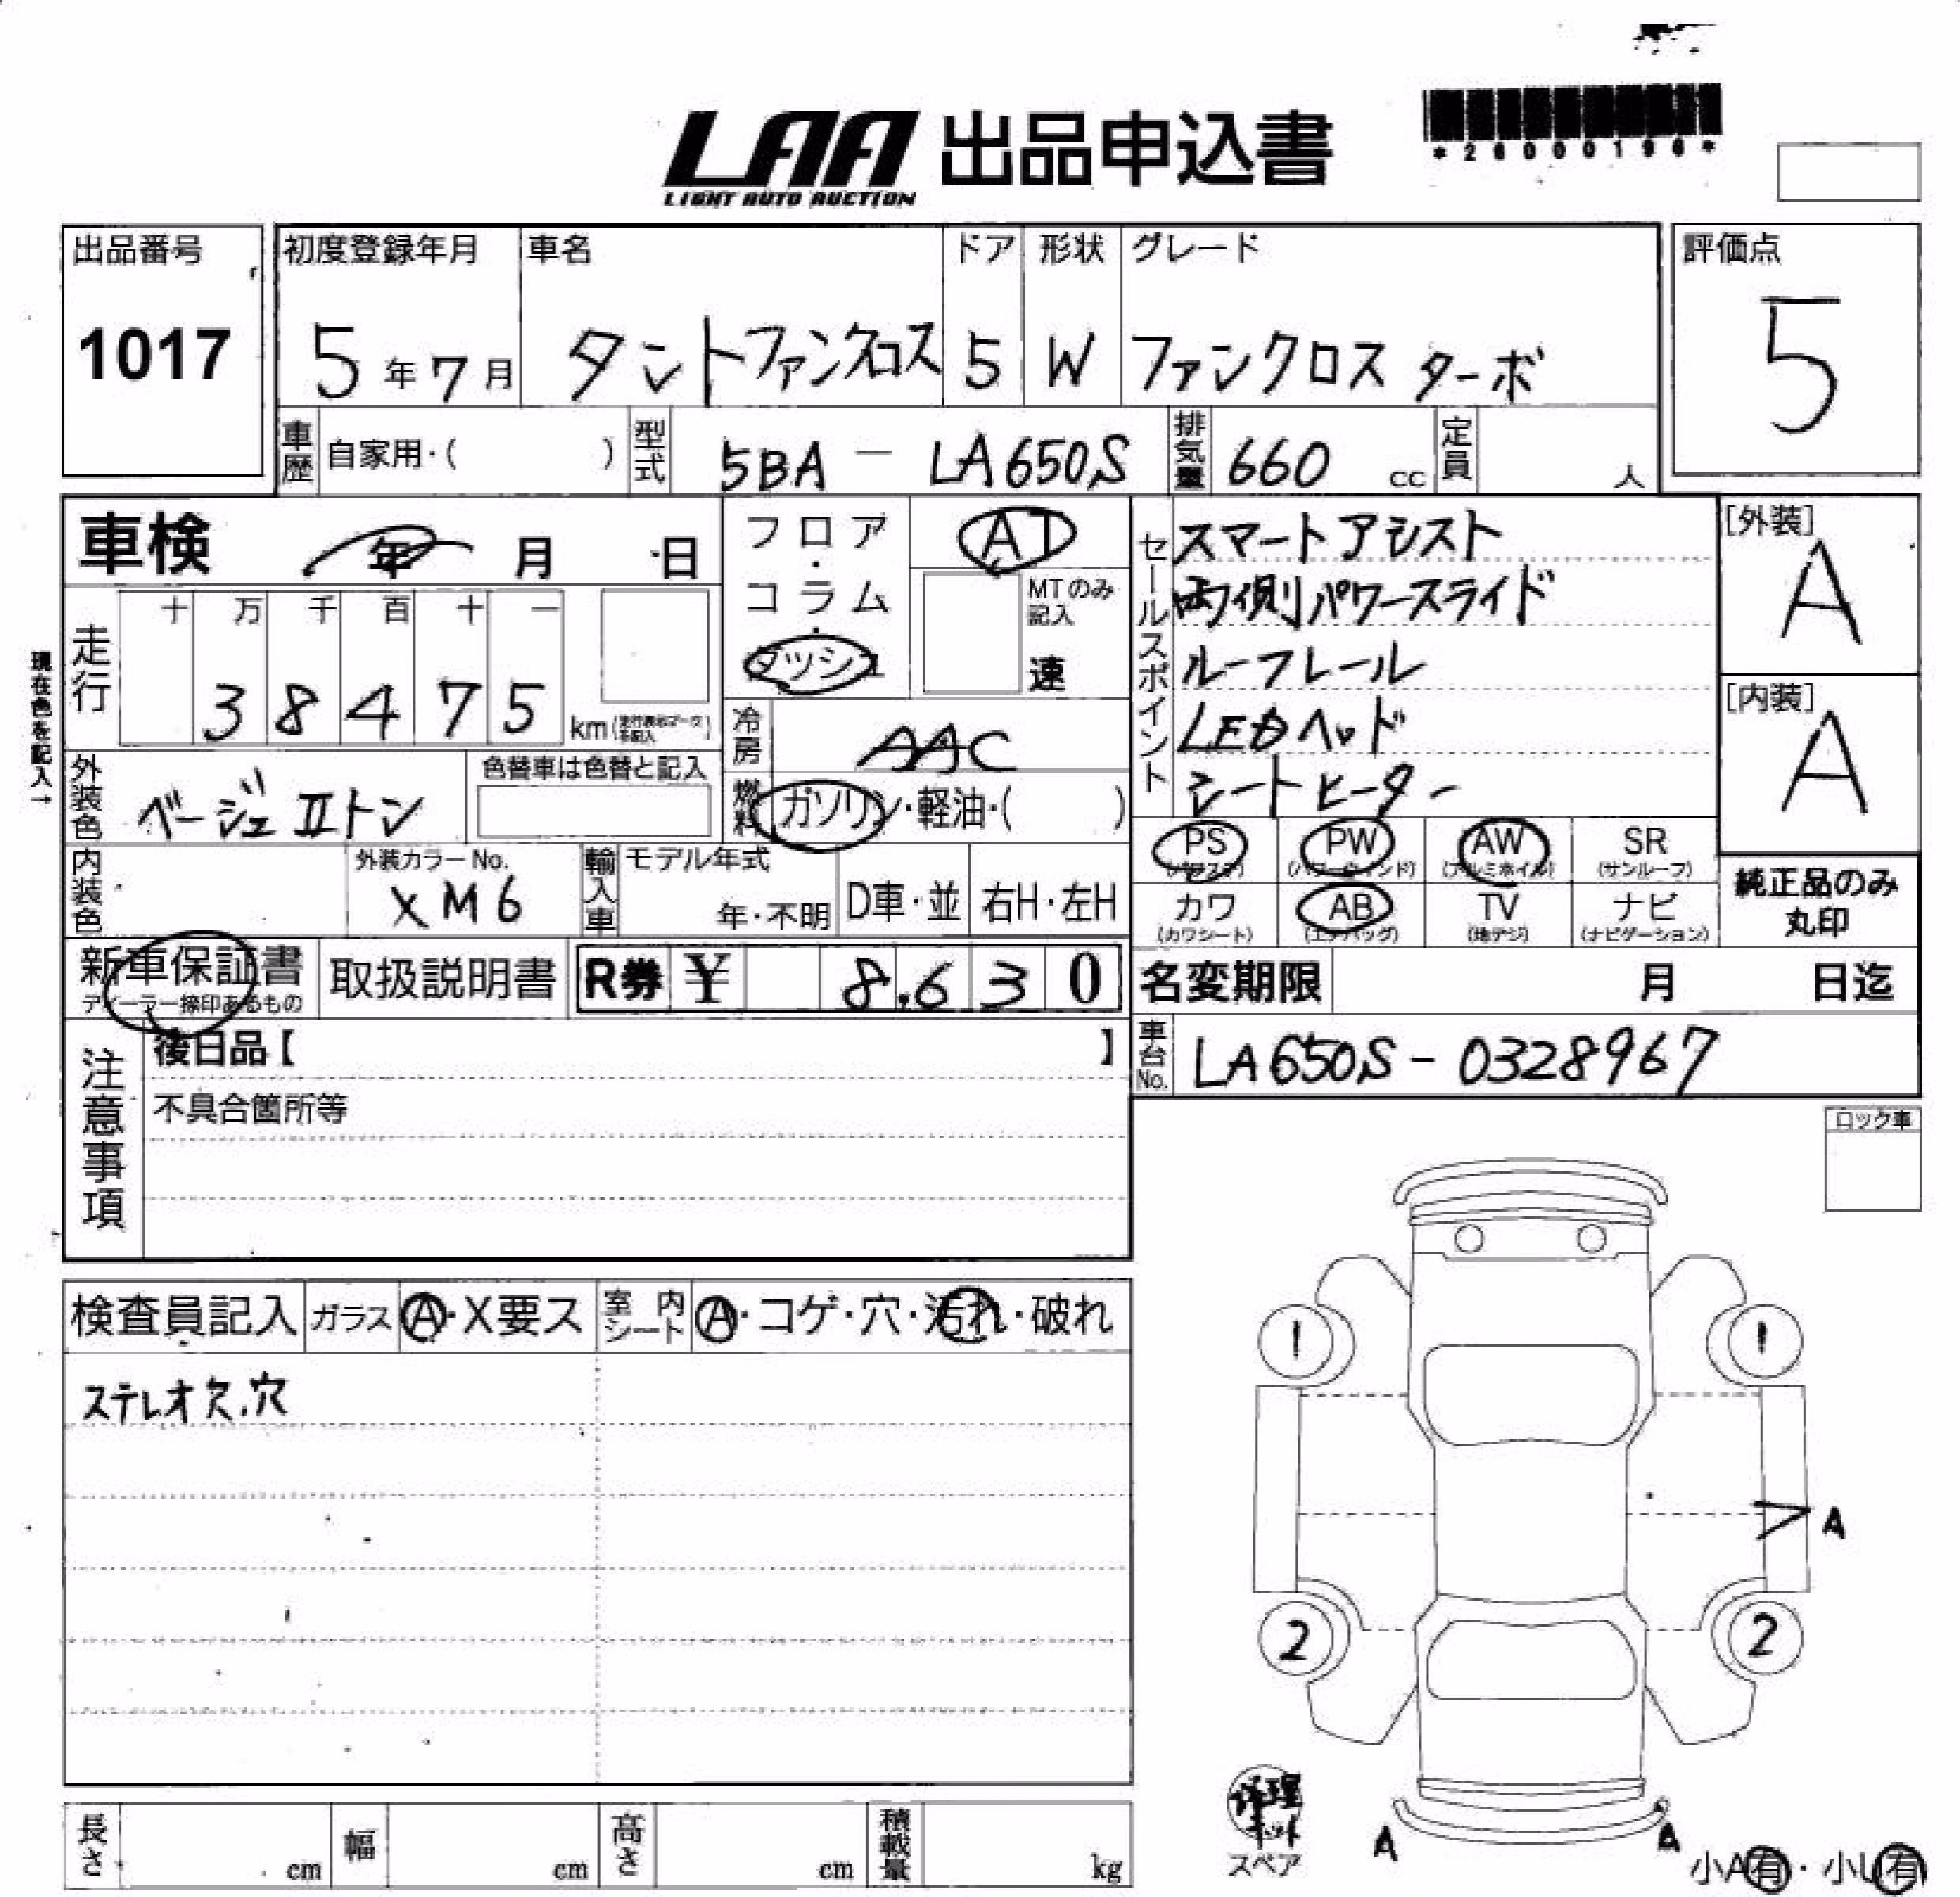 LAA 出品申込書
LIGHT AUTO AUCTION
*26000196*
出品番号
1017
初度登録年月
5年7月
車名
タントファンクロス
ドア
5
形状
W
グレード
ファンクロス ターボ
評価点
5
車歴 自家用・( )
型式 5BA - LA650S
排気量 660 cc
定員 人
車検 年 月 日
フロア・コラム・ダッシュ
AT
MTのみ記入
速
セールスポイント
スマートアシスト
両側パワースライド
ルーフレール
LEDヘッド
シートヒーター
[外装]
A
[内装]
A
現在色を記入→
走行
十 万 千 百 十 一
3 8 4 7 5 km
冷房 AAC
外装色 ベージュ IIトン
色替車は色替と記入
燃料 ガソリン・軽油・( )
PS (パワステ) PW (パワーウィンド) AW (アルミホイル) SR (サンルーフ)
カワ (カワシート) AB (エアバッグ) TV (地デジ) ナビ (ナビゲーション)
純正品のみ
丸印
内装色
外装カラーNo.
XM6
輸入車
モデル年式
年・不明
D車・並
右H・左H
新車保証書
ディーラー捺印あるもの
取扱説明書
R券 ¥ 8,630
名変期限 月 日迄
車台No. LA650S - 0328967
注意事項
後日品【 】
不具合箇所等
ロック車
検査員記入
ガラス Ⓐ・X要ス
室内シート Ⓐ・コゲ・穴・汚れ・破れ
ステレオ欠.穴
1 1
A
2 2
修理キット
スペア
A A
小A有・小U有
長さ cm
幅 cm
高さ cm
積載量 kg